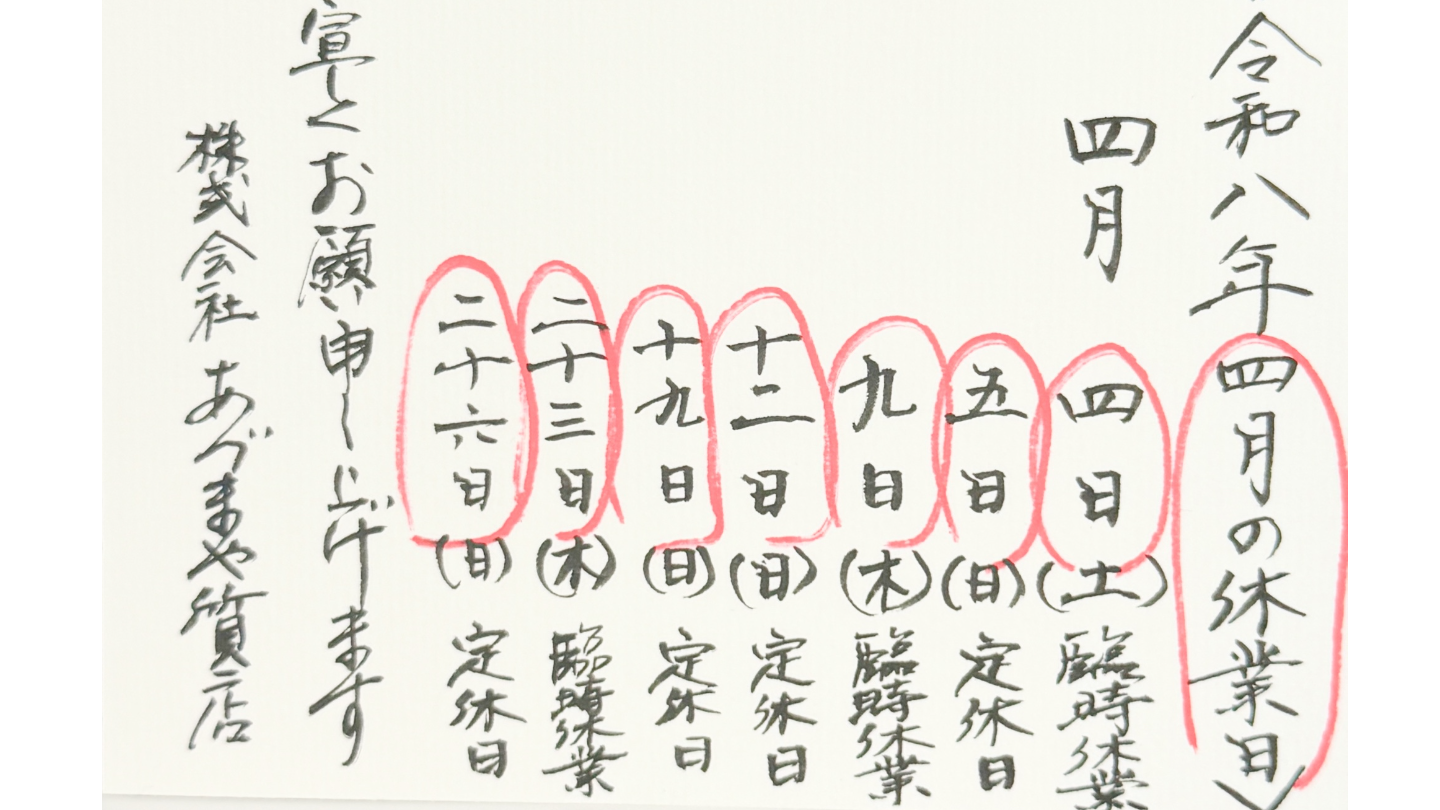 令和八年 四月の休業日
四月
四日(土)臨時休業
五日(日)定休日
九日(木)臨時休業
十二日(日)定休日
十九日(日)定休日
二十三日(木)臨時休業
二十六日(日)定休日
宜しくお願い申し上げます
株式会社 あづまや質店